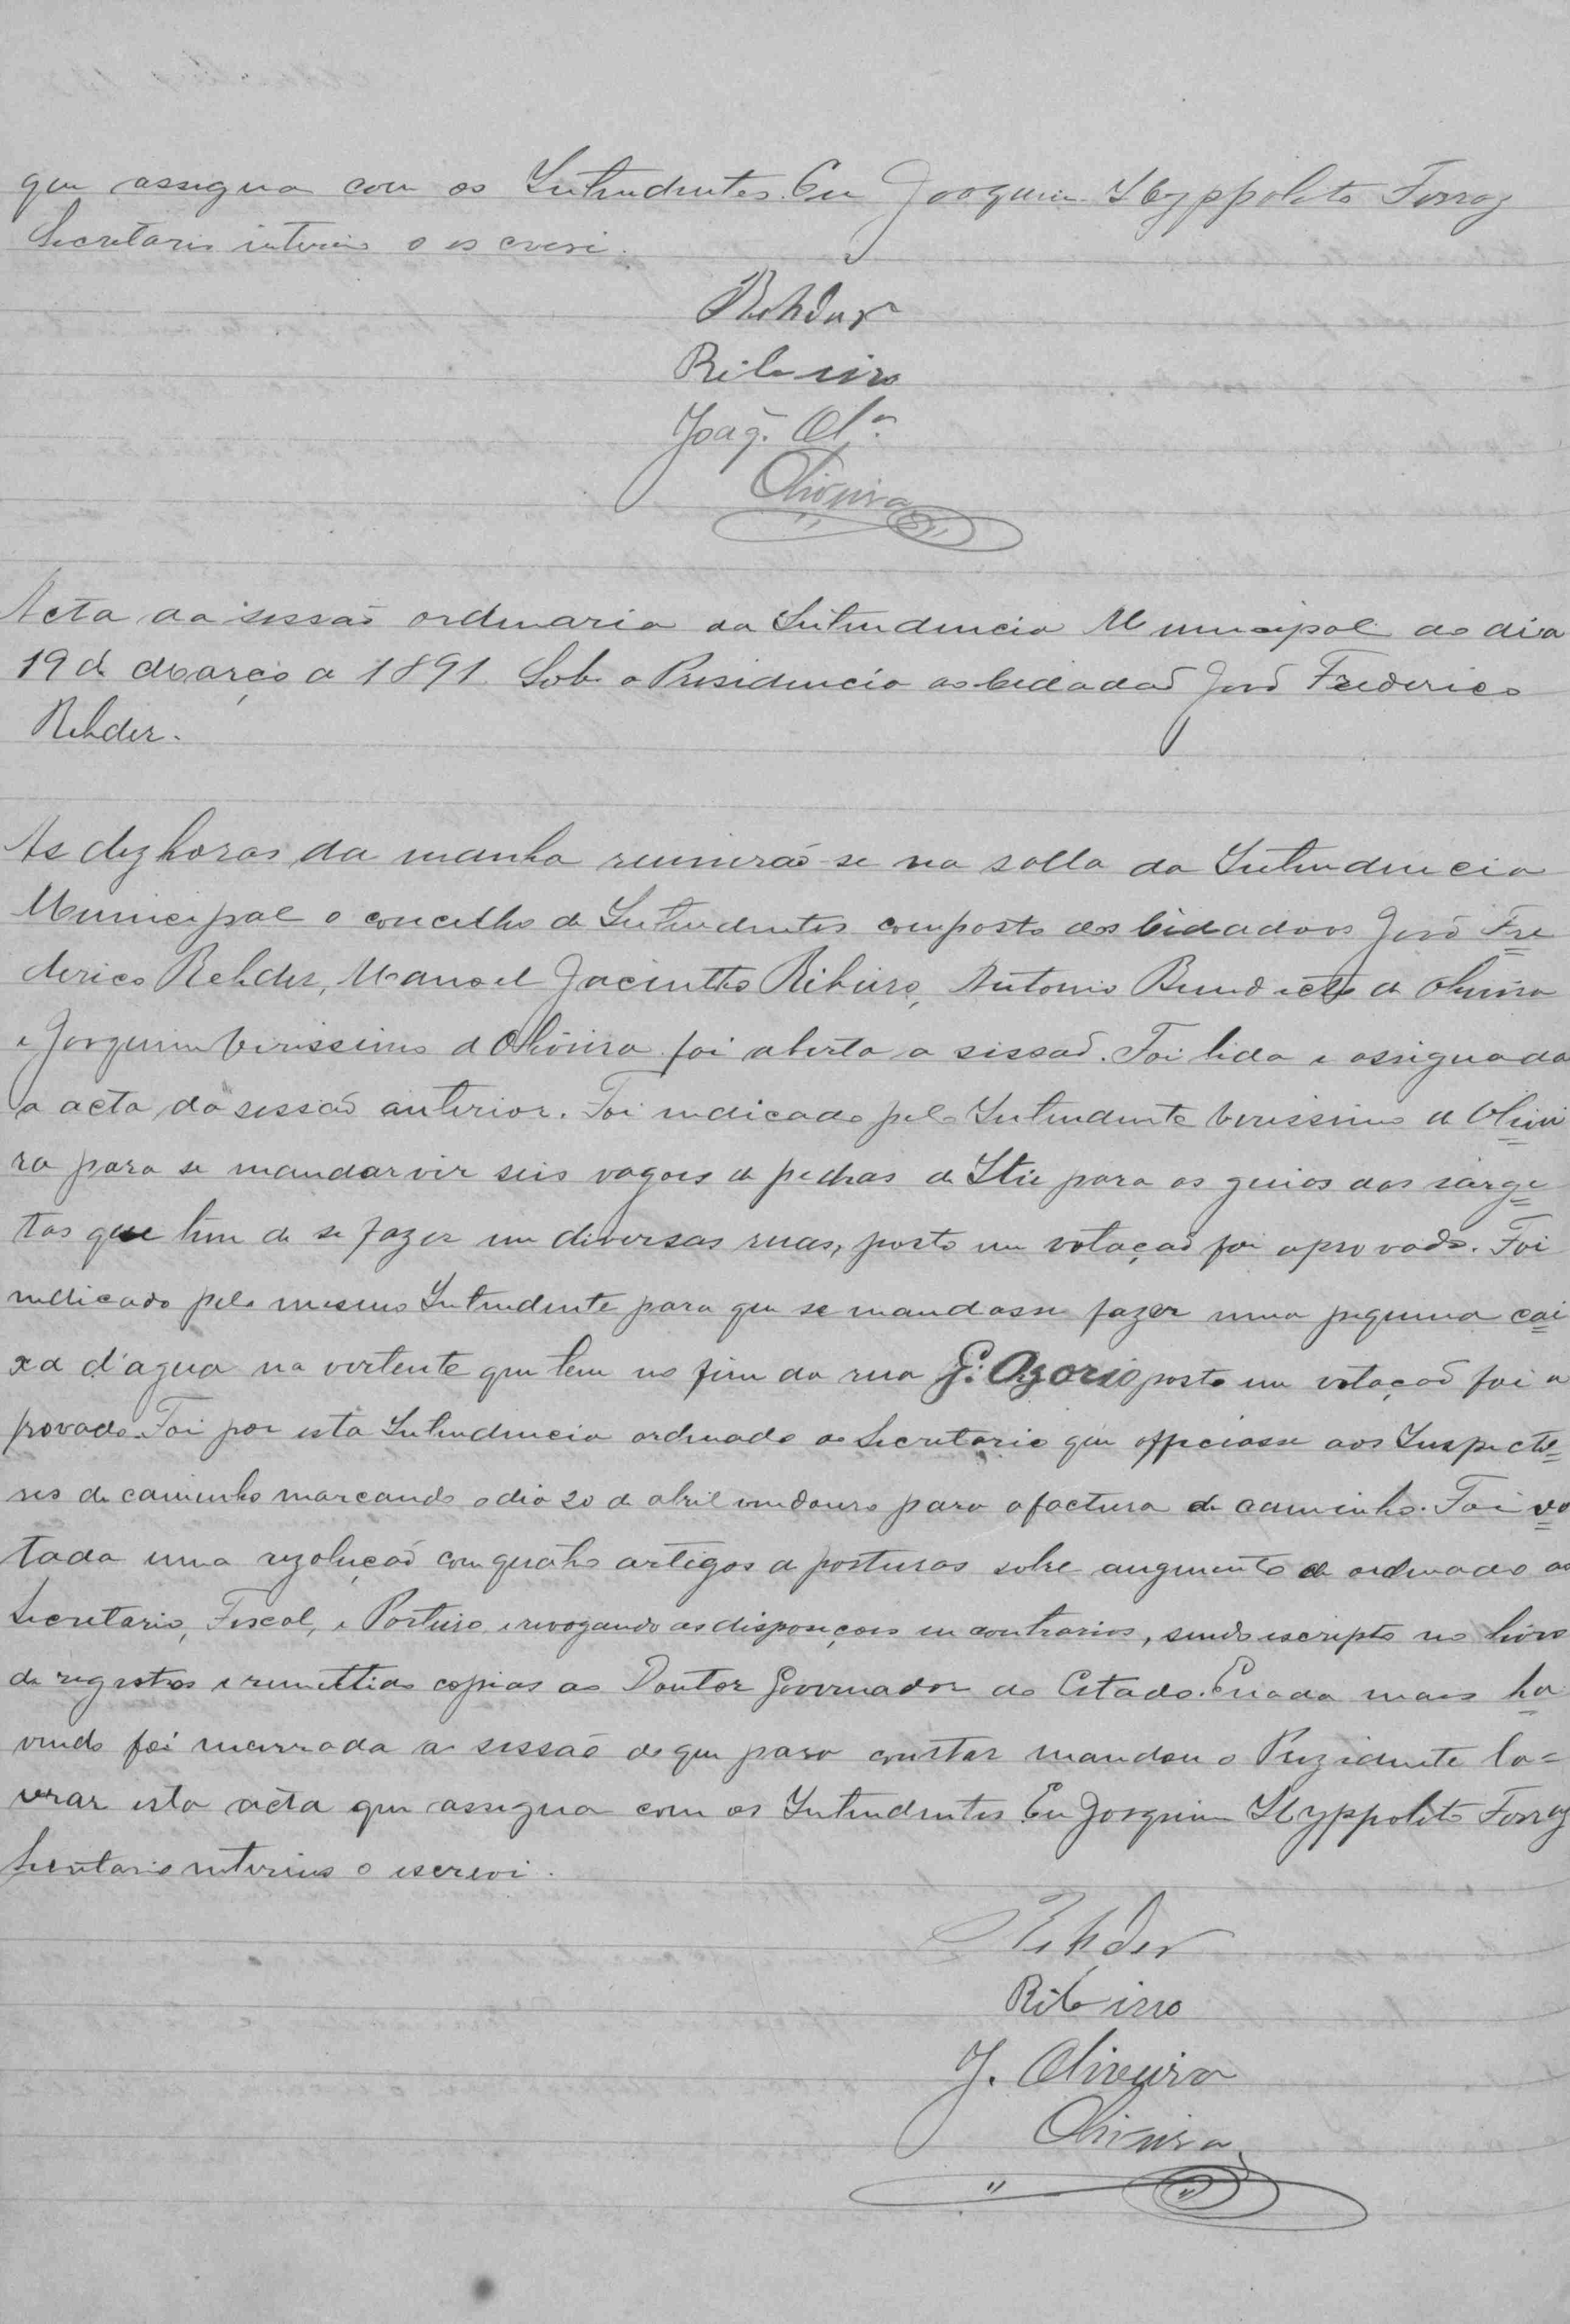 que assigna com os Intendentes. Eu Joaquim Hyppolito Ferraz
Secretario interino o escrevi.
Rehder
Ribeiro
Joaq. Olª.
Oliveira
Acta da sessão ordenaria da Intendencia Municipal do dia
19 de Março de 1891. Sob a Presidencia do Cidadão José Frederico
Rehder.
As dez horas da manha reunirão-se na salla da Intendencia
Municipal o concelho de Intendentes composto dos Cidadoos José Fre
derico Rehder, Manoel Jacintho Ribeiro, Antonio Benedicto de Oliveira
e Joaquim Verissimo de Oliveira foi aberta a sessão. Foi lida e assignada
a acta da sessão anterior. Foi indicado pelo Intendente Verissimo de Olivei
ra para se mandar vir seis vagoes de pedras de Itú para os guias das sarge
tas que tem de se fazer em diversas ruas, posto em votação foi aprovado. Foi
indicado pelo mesmo Intendente para que se mandasse fazer uma pequena cai
xa d'agua na vertente que tem no fim da rua G. Ozorio posto em votação foi a
provado. Foi por esta Intendencia ordenado ao Secretario que officiasse aos Inspecto=
res de caminho marcando o dia 20 de abril vindouro para a factura de caminho. Foi vo
tada uma rezolução com quatro artigos de posturas sobre augmento de ordenado ao
Secretario, Fiscal, e Porteiro e revogando as disposiçoes em contrarios, sendo escripto no livro
de registros e remettido copias ao Doutor Governador do Estado. E nada mais ha
vendo foi incerrada a sessão do que para constar mandou o Prezidente la=
vrar esta acta que assigna com os Intendentes Eu Joaquim Hyppolito Ferraz
Secretario interino o escrevi.
Rehder
Ribeiro
J. Oliveira
Oliveira